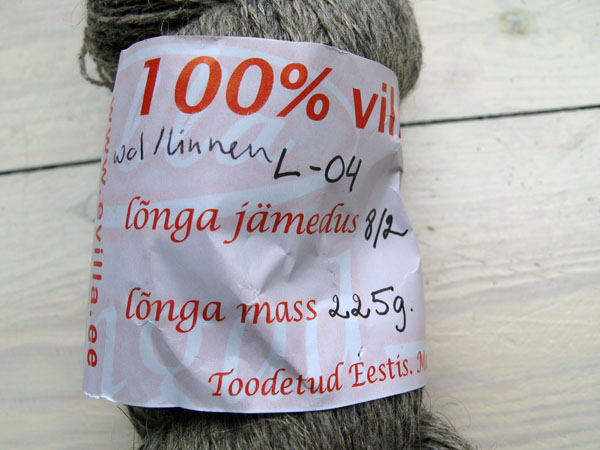 100% vil
wol/linnen L-04
lõnga jämedus 8/2
lõnga mass 225g.
Toodetud Eestis. M
www.evilla.ee